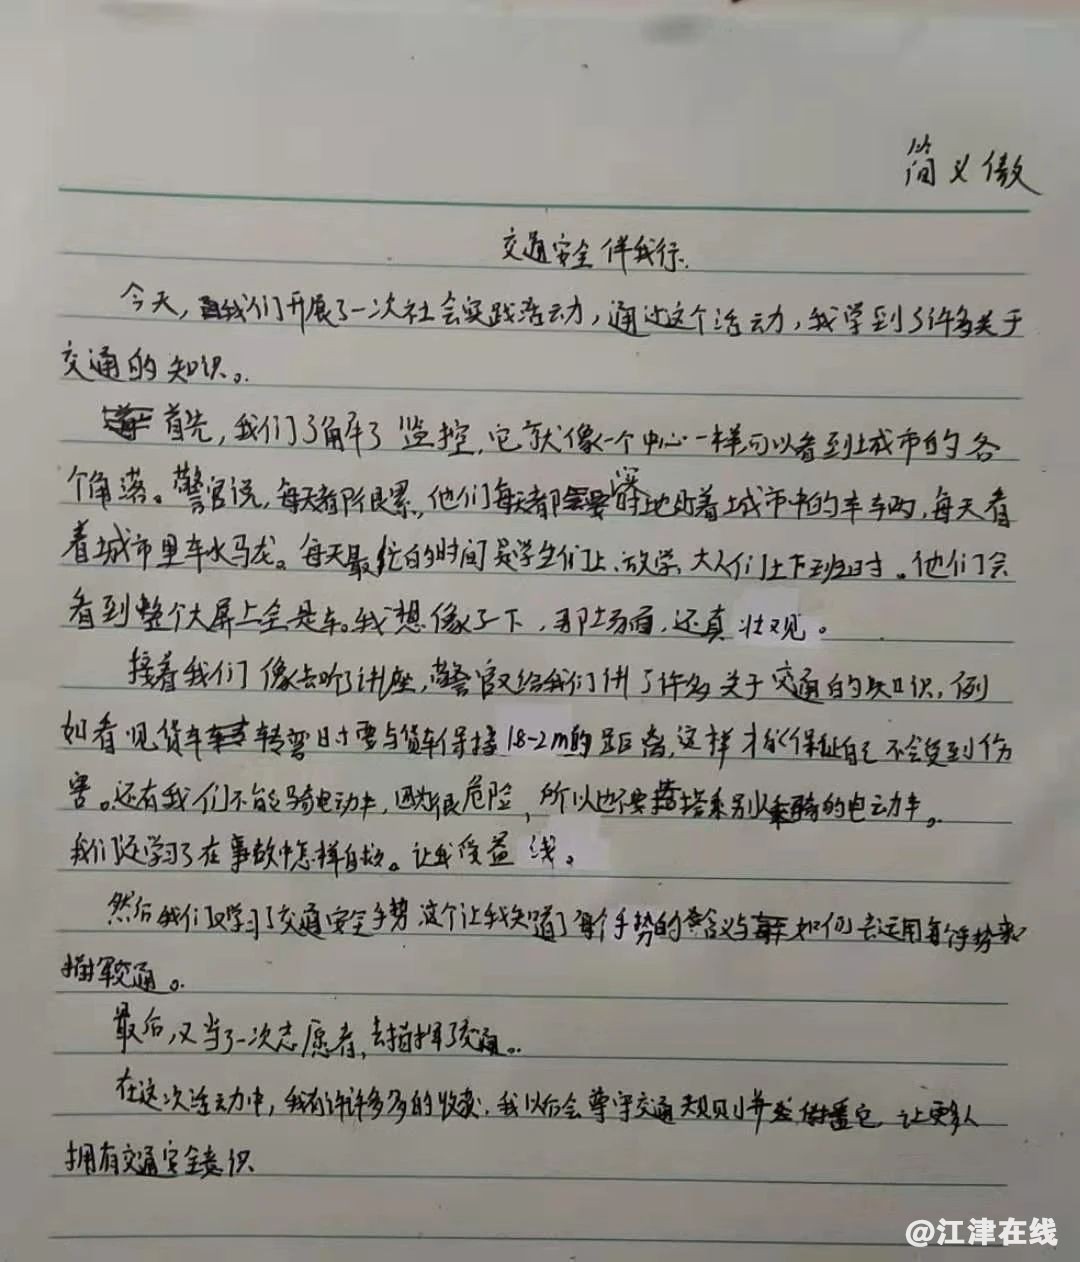 简义傲
交通安全伴我行.
今天,我们开展了一次社会实践活动,通过这个活动,我学到了许多关于
交通的知识。
首先,我们了解了监控,它就像一个中心一样,可以看到城市的各
个角落。警官说,每天都很累,他们每天都要 地盯着城市中的车车辆,每天看
着城市里车水马龙。每天最忙的时间是学生们上、放学、大人们上下班时。他们会
看到整个大屏上全是车。我想像了下,那场面,还真壮观。
接着我们像去听了讲座,警官又给我们讲了许多关于交通的知识,例
如看见货车转弯时要与货车保持1.8-2m的距离,这样才能保证自己不会受到伤
害。还有我们不能骑电动车,因为很危险,所以也不要搭乘别人骑的电动车。
我们还学习了在事故中怎样自救。让我受益 。
然后我们又学习了交通安全手势 这个让我知道了每个手势的含义与如何去运用每个手势来
指挥交通。
最后,又当了一次志愿者,去指挥了交通。
在这次活动中,我有许许多多的收获,我以后会尊守交通规则并 它,让更多人
拥有交通安全意识
@江津在线